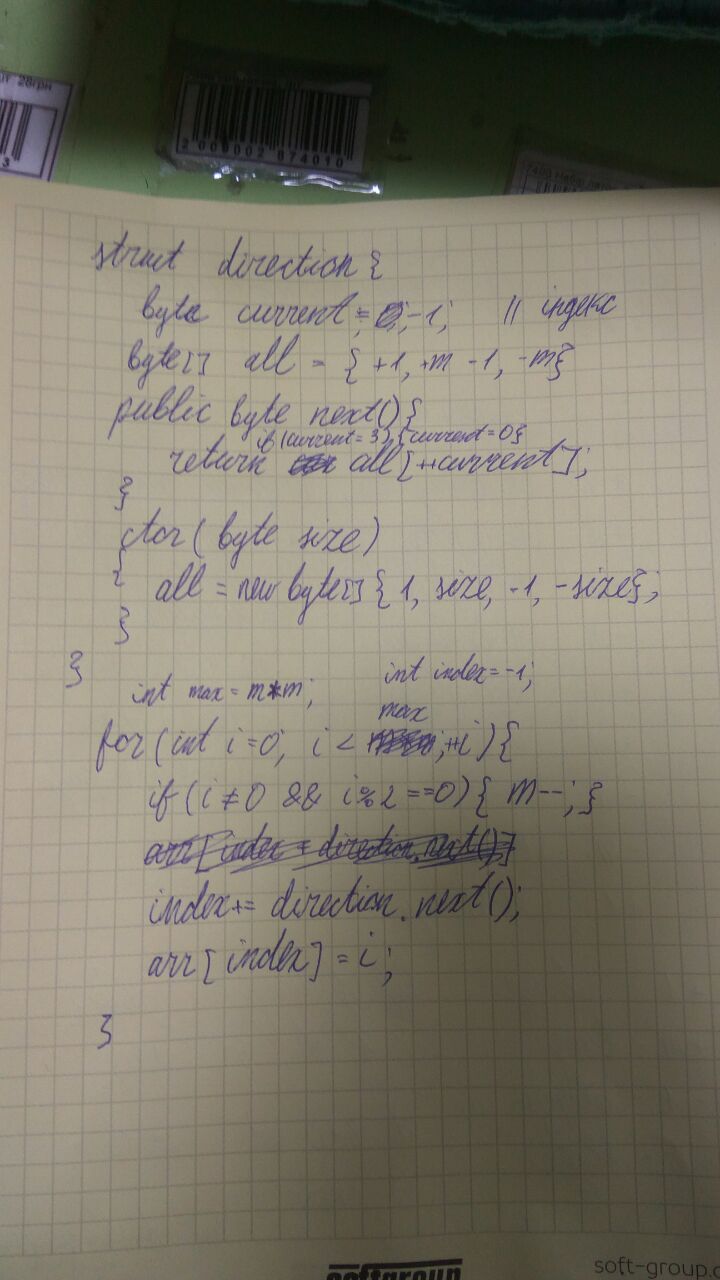 28грн
3
2 000002 674010
struct direction {
byte current = -1; // індекс
byte[] all = { +1, +m -1, -m}
public byte next(){
if (current = 3) { current = 0}
return all[++current];
}
ctor( byte size)
{
all = new byte[] { 1, size, -1, -size};
}
}
int max = m*m; int index = -1;
max
for( int i=0; i < ; ++i ){
if ( i ≠ 0 && i % 2 == 0) { m--; }
arr[ index = direction.next();]
index += direction.next();
arr[ index ] = i ;
}
softgroup